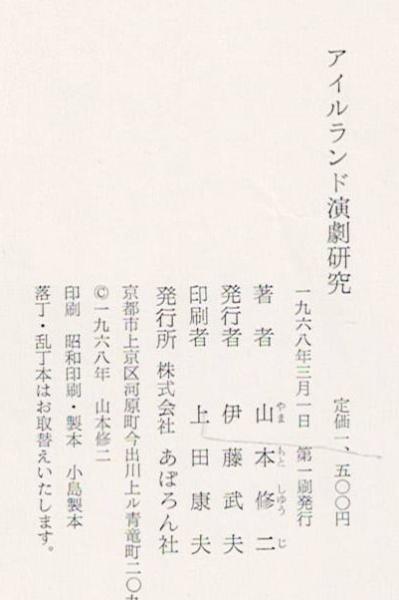 アイルランド演劇研究
定価一、五〇〇円
一九六八年三月一日　第一刷発行
著者　山本修二
やま　もと　しゆう　じ
発行者　伊藤武夫
印刷者　上田康夫
発行所　株式会社　あぽろん社
京都市上京区河原町今出川上ル青竜町二〇九
©一九六八年　山本修二
印刷　昭和印刷・製本　小島製本
落丁・乱丁本はお取替えいたします。